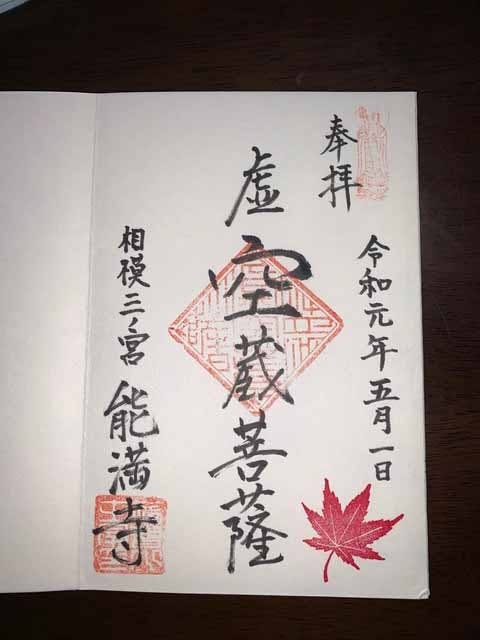 奉拝
令和元年五月一日
虚空蔵菩薩
相模三ノ宮 能満寺